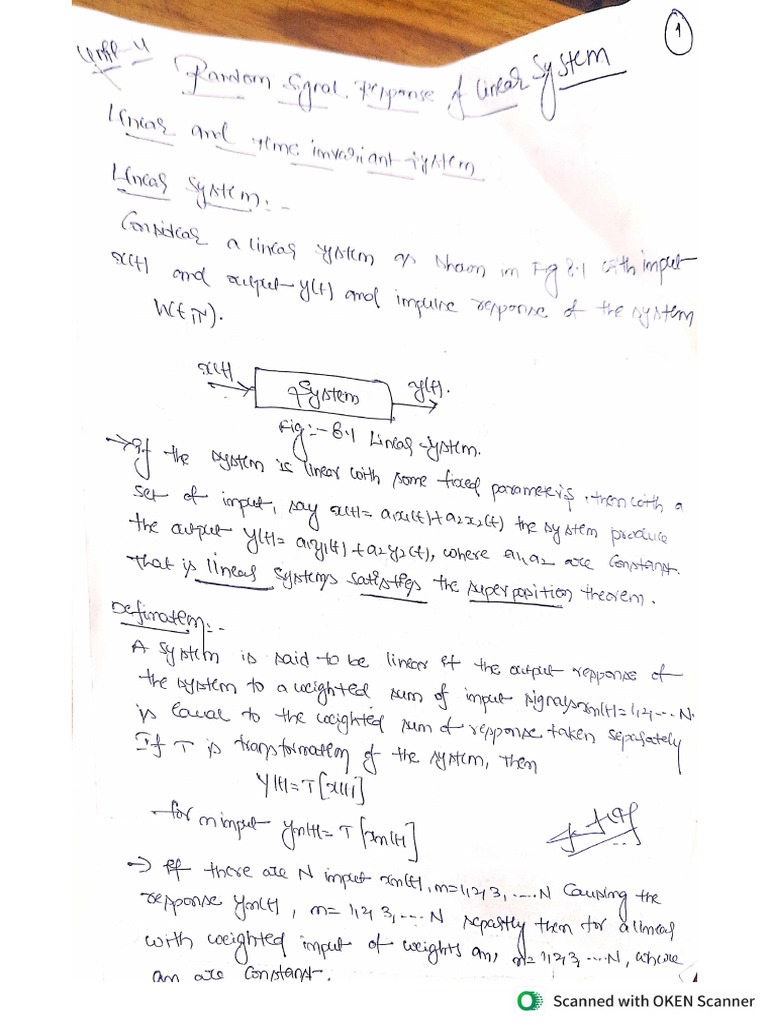 1
Unit-4
Random Signal Response of Linear System
Linear and time invariant system
Linear System:-
Consider a linear system as shown in Fig 8.1 with input
x(t) and output y(t) and impulse response of the system
h(t,τ).
x(t) System y(t).
Fig:- 8.1 Linear system.
→ If the system is linear with some fixed parameters, then with a
set of input, say x(t)= a1x1(t)+a2x2(t) the system produce
the output y(t)= a1y1(t)+a2y2(t), where a1,a2 are constant.
that is linear systems satisfies the superposition theorem.
Defination:-
A system is said to be linear if the output response of
the system to a weighted sum of input signals xn(t)=1,2,...N.
is equal to the weighted sum of response taken seperately
If T is transformation of the system, then
Y(t)=T[x(t)]
for n input yn(t)= T[xn(t)]
→ If there are N input xn(t), n=1,2,3,....N causing the
response yn(t), n= 1,2,3,...N then for a linear
with weighted input of weights an, n=1,2,3,...N, where
an are constant.
Scanned with OKEN Scanner